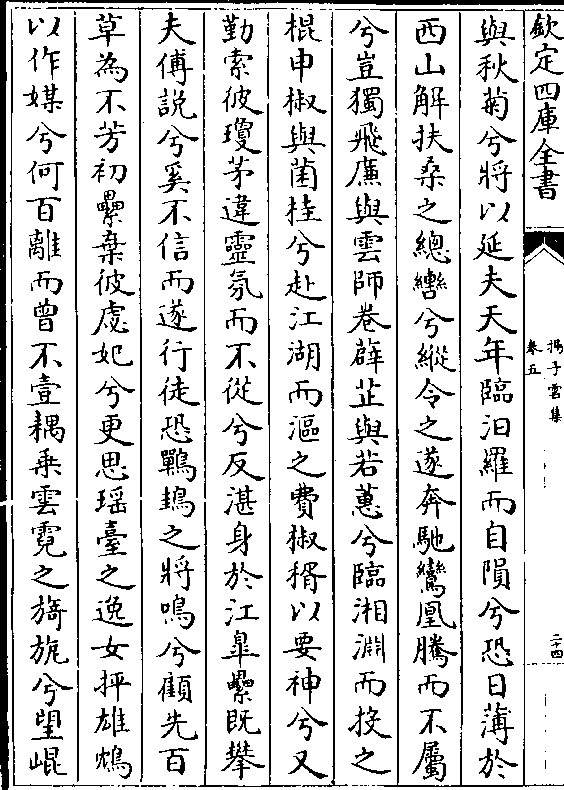 欽定四庫全書
揚子雲集
卷五
二十四
與秋菊兮將以延夫天年臨汨羅而自隕兮恐日薄於
西山解扶桑之總轡兮縱令之遂奔馳鸞凰騰而不屬
兮豈獨飛廉與雲師卷薜芷與若蕙兮臨湘淵而投之
棍申椒與菌桂兮赴江湖而漚之費椒稰以要神兮又
勤索彼瓊茅違靈氛而不從兮反湛身於江臯纍既攀
夫傅説兮奚不信而遂行徒恐鷤䳏之將鳴兮顧先百
草為不芳初纍棄彼虙妃兮更思瑶臺之逸女抨雄鴆
以作媒兮何百離而曾不壹耦乘雲霓之旖旎兮望崐